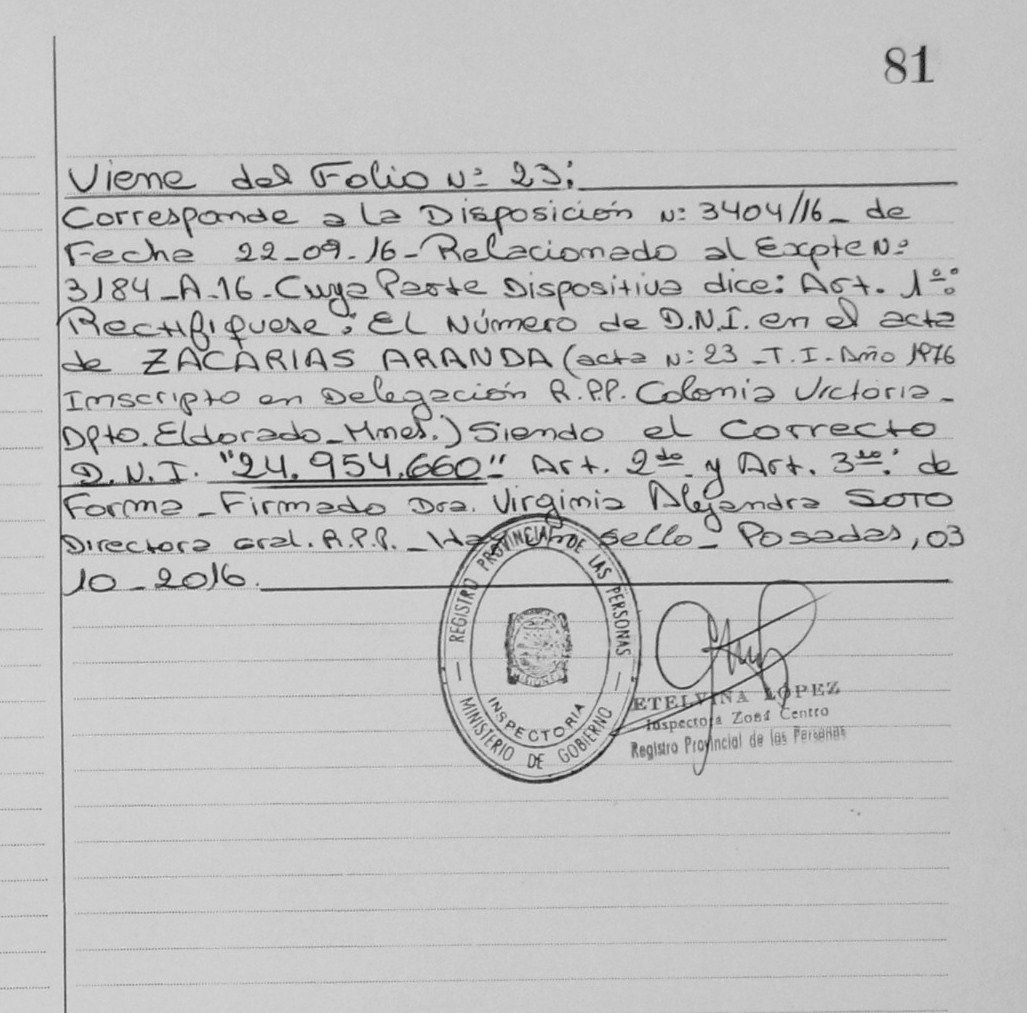 81
Viene del Folio Nº 23:
Corresponde a la Disposición Nº 3404/16_ de
Fecha 22-09-16-Relacionado al Expte Nº
3184-A-16-Cuya Parte Dispositiva dice: Art. 1º:
Rectifíquese: El Número de D.N.I. en el acta
de ZACARIAS ARANDA (acta Nº 23-T.I-Año 1976
Inscripto en Delegación R.P.P. Colonia Victoria-
Dpto. Eldorado-Mnes.) Siendo el Correcto
D.N.I. "24.954.660" Art. 2do y Art. 3ro: de
Forma-Firmado Dra. Virginia Alejandra SOTO
Directora Gral. R.P.P. _ sello_ Posadas, 03
10-2016.
REGISTRO PROVINCIAL DE LAS PERSONAS
INSPECTORIA
MINISTERIO DE GOBIERNO
ETELVINA LOPEZ
Inspectora Zona Centro
Registro Provincial de las Personas